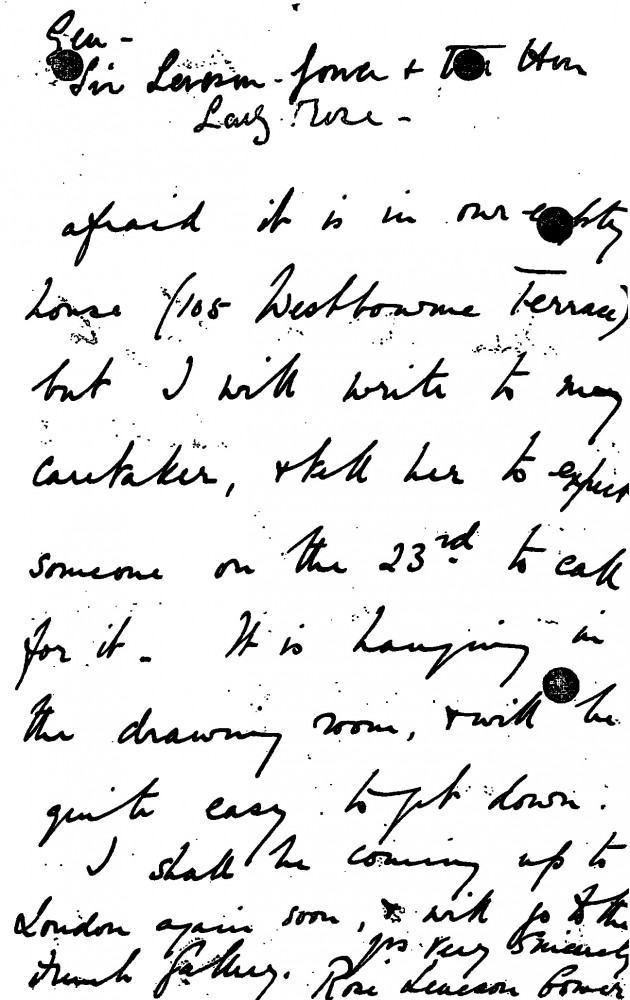 Gen -
Sir Leveson-Gower + The Hon
Lady Rose -
afraid it is in our empty
house (105 Westbourne Terrace)
but I will write to my
caretaker, & tell her to expect
someone on the 23rd to call
for it. It is hanging in
the drawing room, & will be
quite easy to get down.
I shall be coming up to
London again soon, & will go to the
French Gallery. yrs very sincerely
Rose Leveson Gower